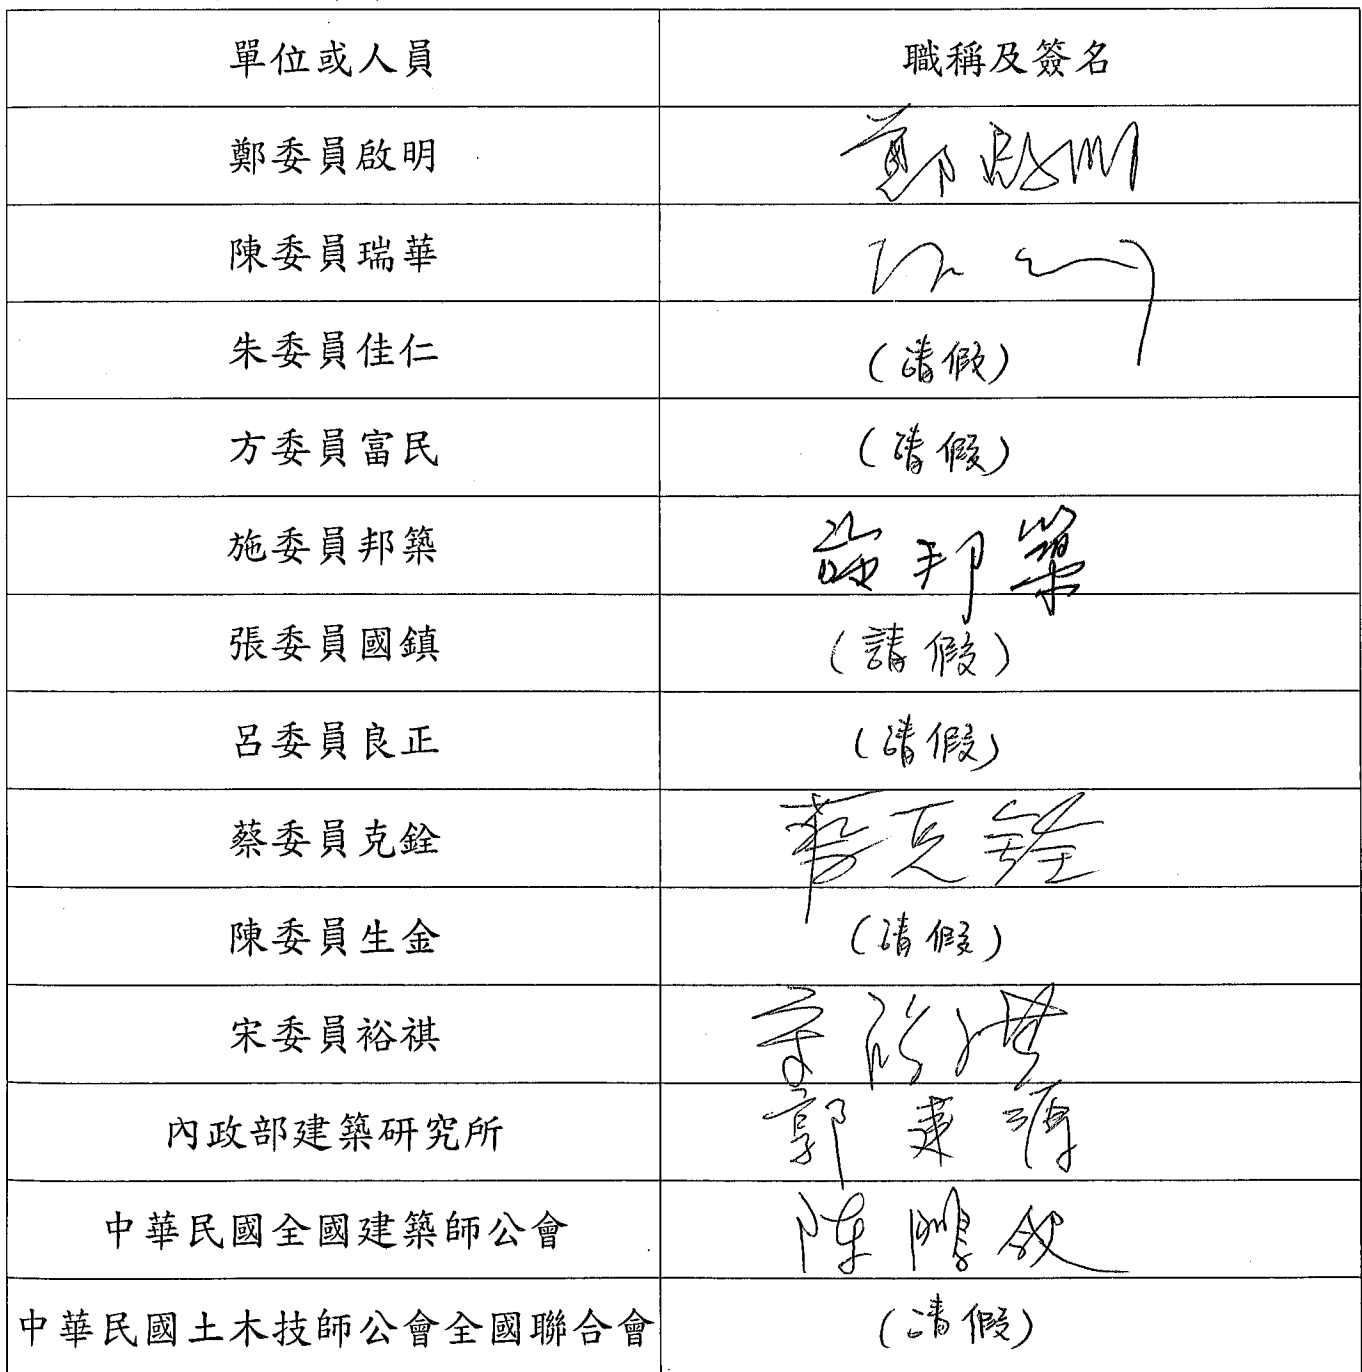 單位或人員 職稱及簽名
鄭委員啟明 鄭啟明
陳委員瑞華
朱委員佳仁 (請假)
方委員富民 (請假)
施委員邦築 施邦築
張委員國鎮 (請假)
呂委員良正 (請假)
蔡委員克銓 蔡克銓
陳委員生金 (請假)
宋委員裕祺 宋裕祺
內政部建築研究所 郭建源
中華民國全國建築師公會 陳鵬欽
中華民國土木技師公會全國聯合會 (請假)